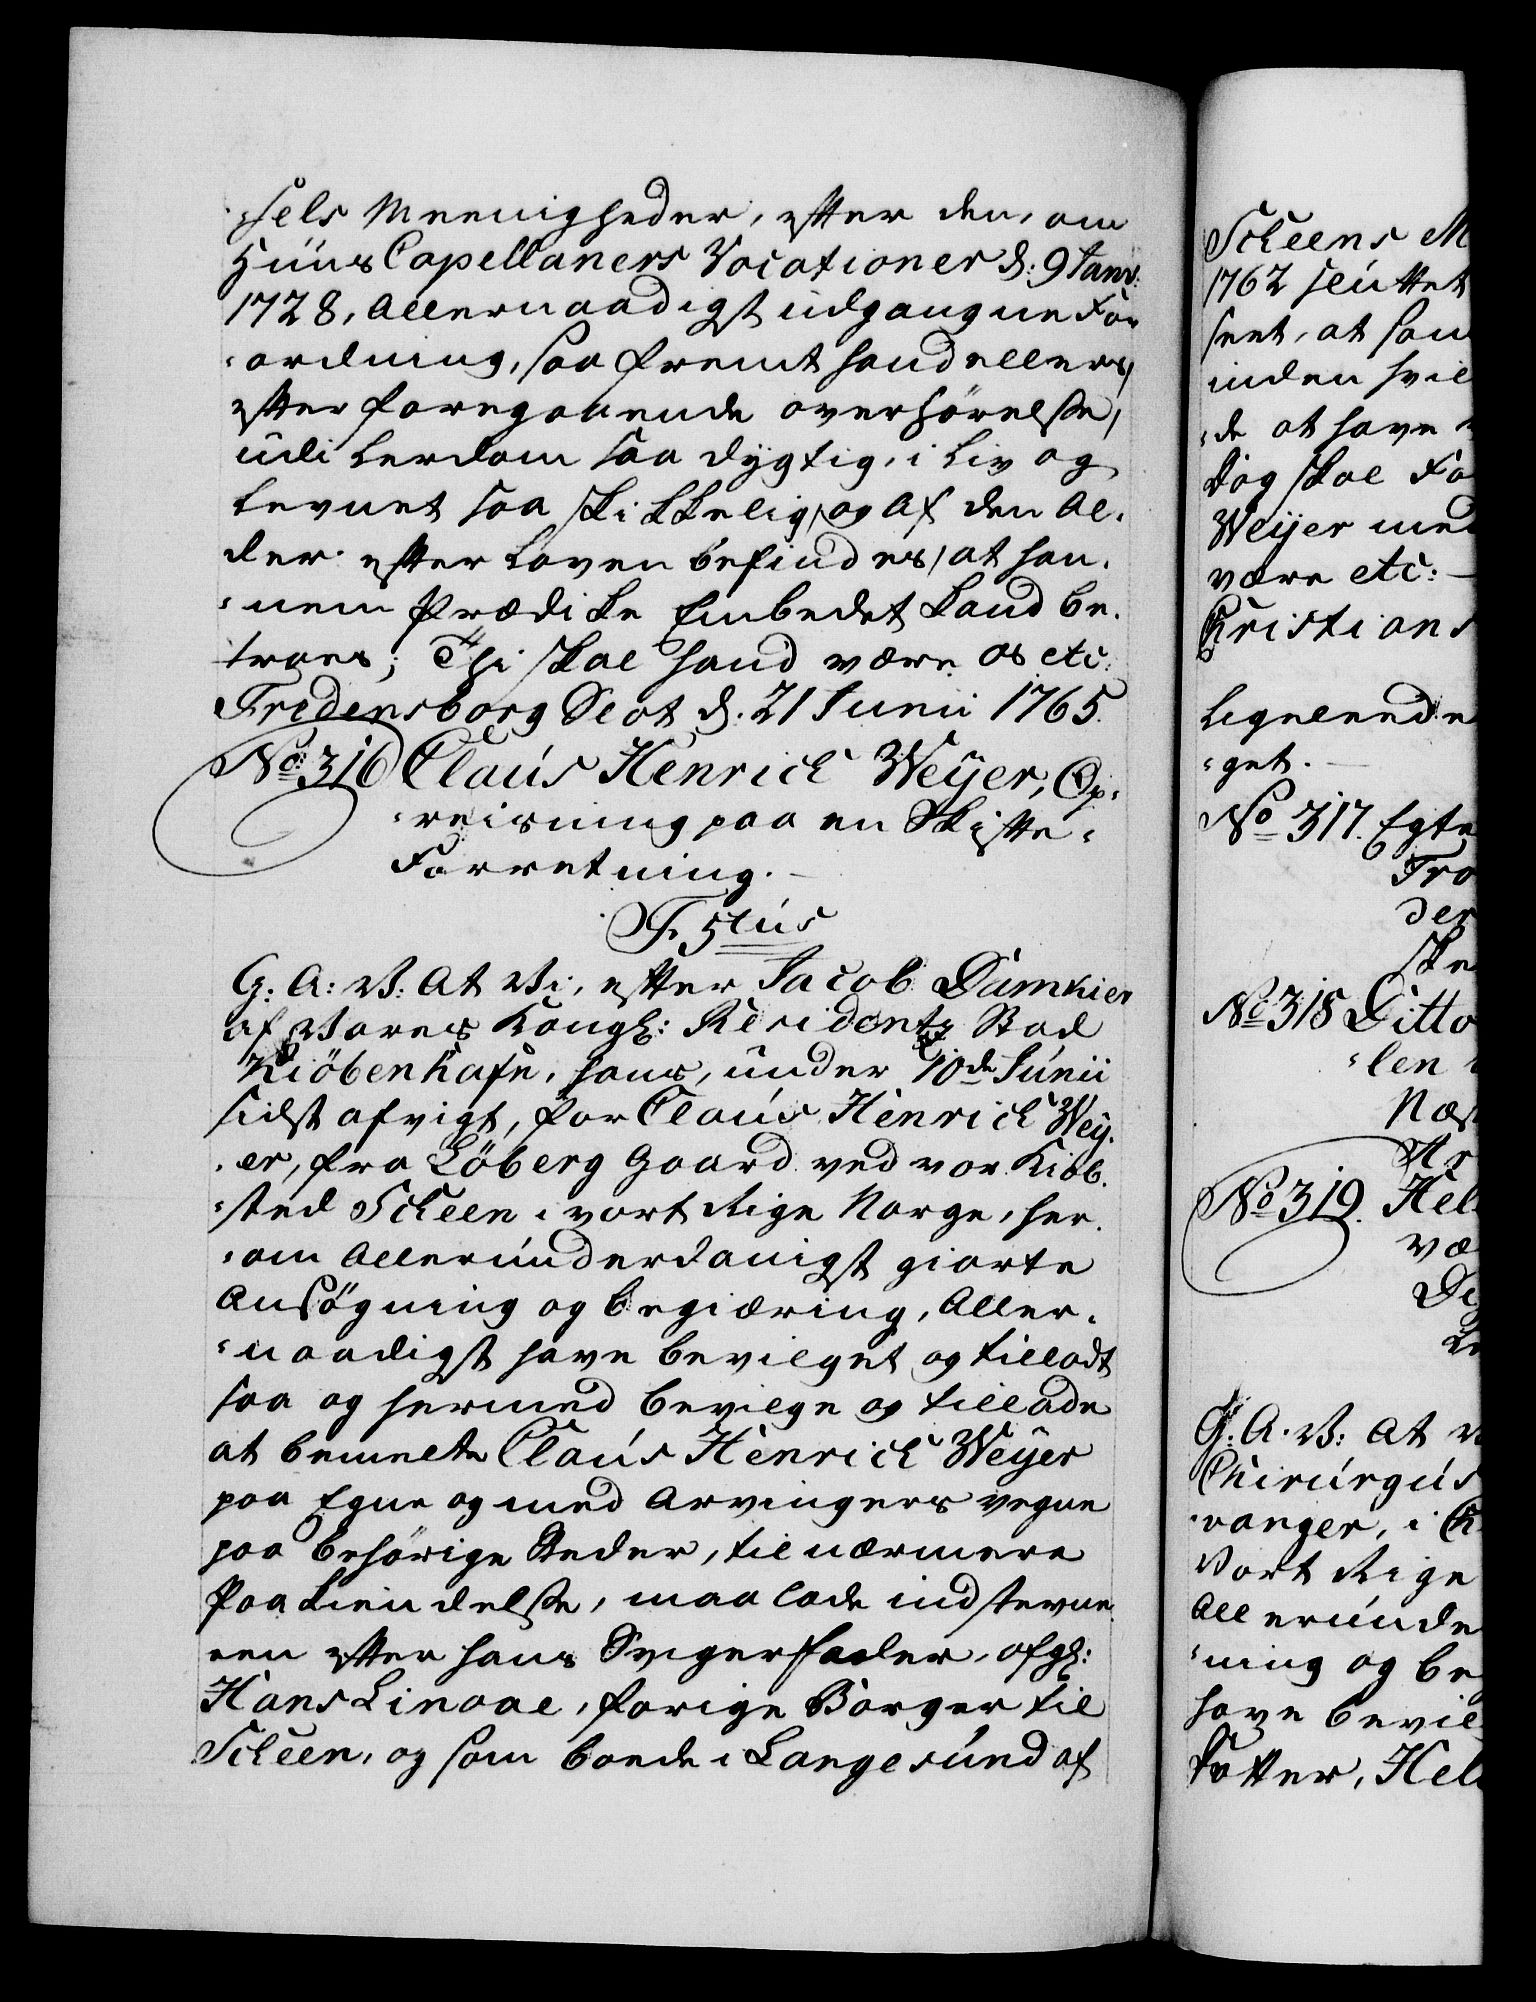 sels Meenigheder, efter den, om
Huus Capellaners Vocationer d: 9 Janv:
1728, Allernaadigst udgangne For
ordning, saa fremt hand ellers,
efter foregaaende overhörelse,
udi Lerdom saa dygtig, i Liv og
Levnet saa skikkelig, og af den Al-
der efter Loven befindes, at han-
nem Prædike Embedet kand be-
troes; Thi skal hand være os etc:
Fredensborg Slot d. 21 Junii 1765.
No: 316 Claus Henrich Weyer, Op-
reisning paa en Skifte-
Forretning.
F. 5tus
G: A: V: At Vi, efter Jacob Damkier
af Vores Kongl: Residentz Stad
Kiöbenhafn, hans, under 10de Junii
sidst afvigt, for Claus Henrich Wey-
er, fra Löberg Gaard ved vor Kiöb-
sted Scheen i vort Rige Norge, her-
om Allerunderdanigst giorte
Ansögning og begiæring, Aller-
naadigst have bevilget og tilladt
saa og hermed bevilge og tillade
at bemelte Claus Henrich Weyer
paa Egne og med Arvingers vegne
paa behörige Steder, til nærmere
Paakiendelse, maa lade indstevne
een efter hans Svigerfader, afgl:
Hans Linaae, forige Borger til
Scheen, og som boede i Langesund af
Scheens M
1762 sluttet
seet, at han
inden hvil
de at have
Dog skal Fo
Weyer med
være etc: –
Christians
Ligeleede
get. –
No 317. Egte
Fra
der
ske
No 318 Ditto
len
Næst
No 319. Hel
væ
De
G. A. V: At v
Chirurgus
vanger, i C
Vort Rige
Allerunde
ning og be
have bevil
Datter, Hel